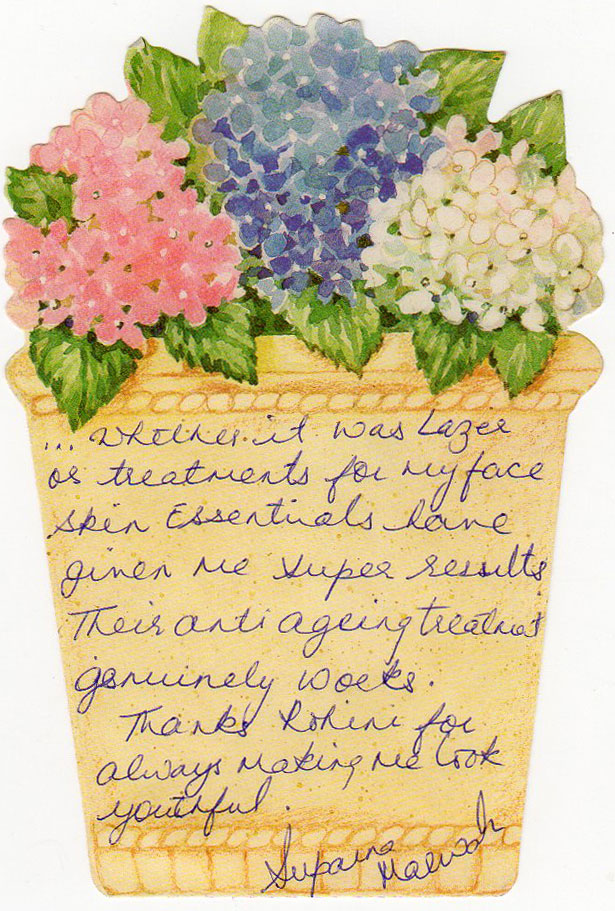 ... whether it was Lazer
or treatments for my face
Skin Essentials have
given me super results
Their anti ageing treatment
genuinely works.
Thanks Rohini for
always making me look
youthful.
Suparna